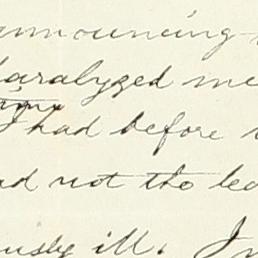 announcing
paralyzed me
I had before
had not the lea
ously ill. In